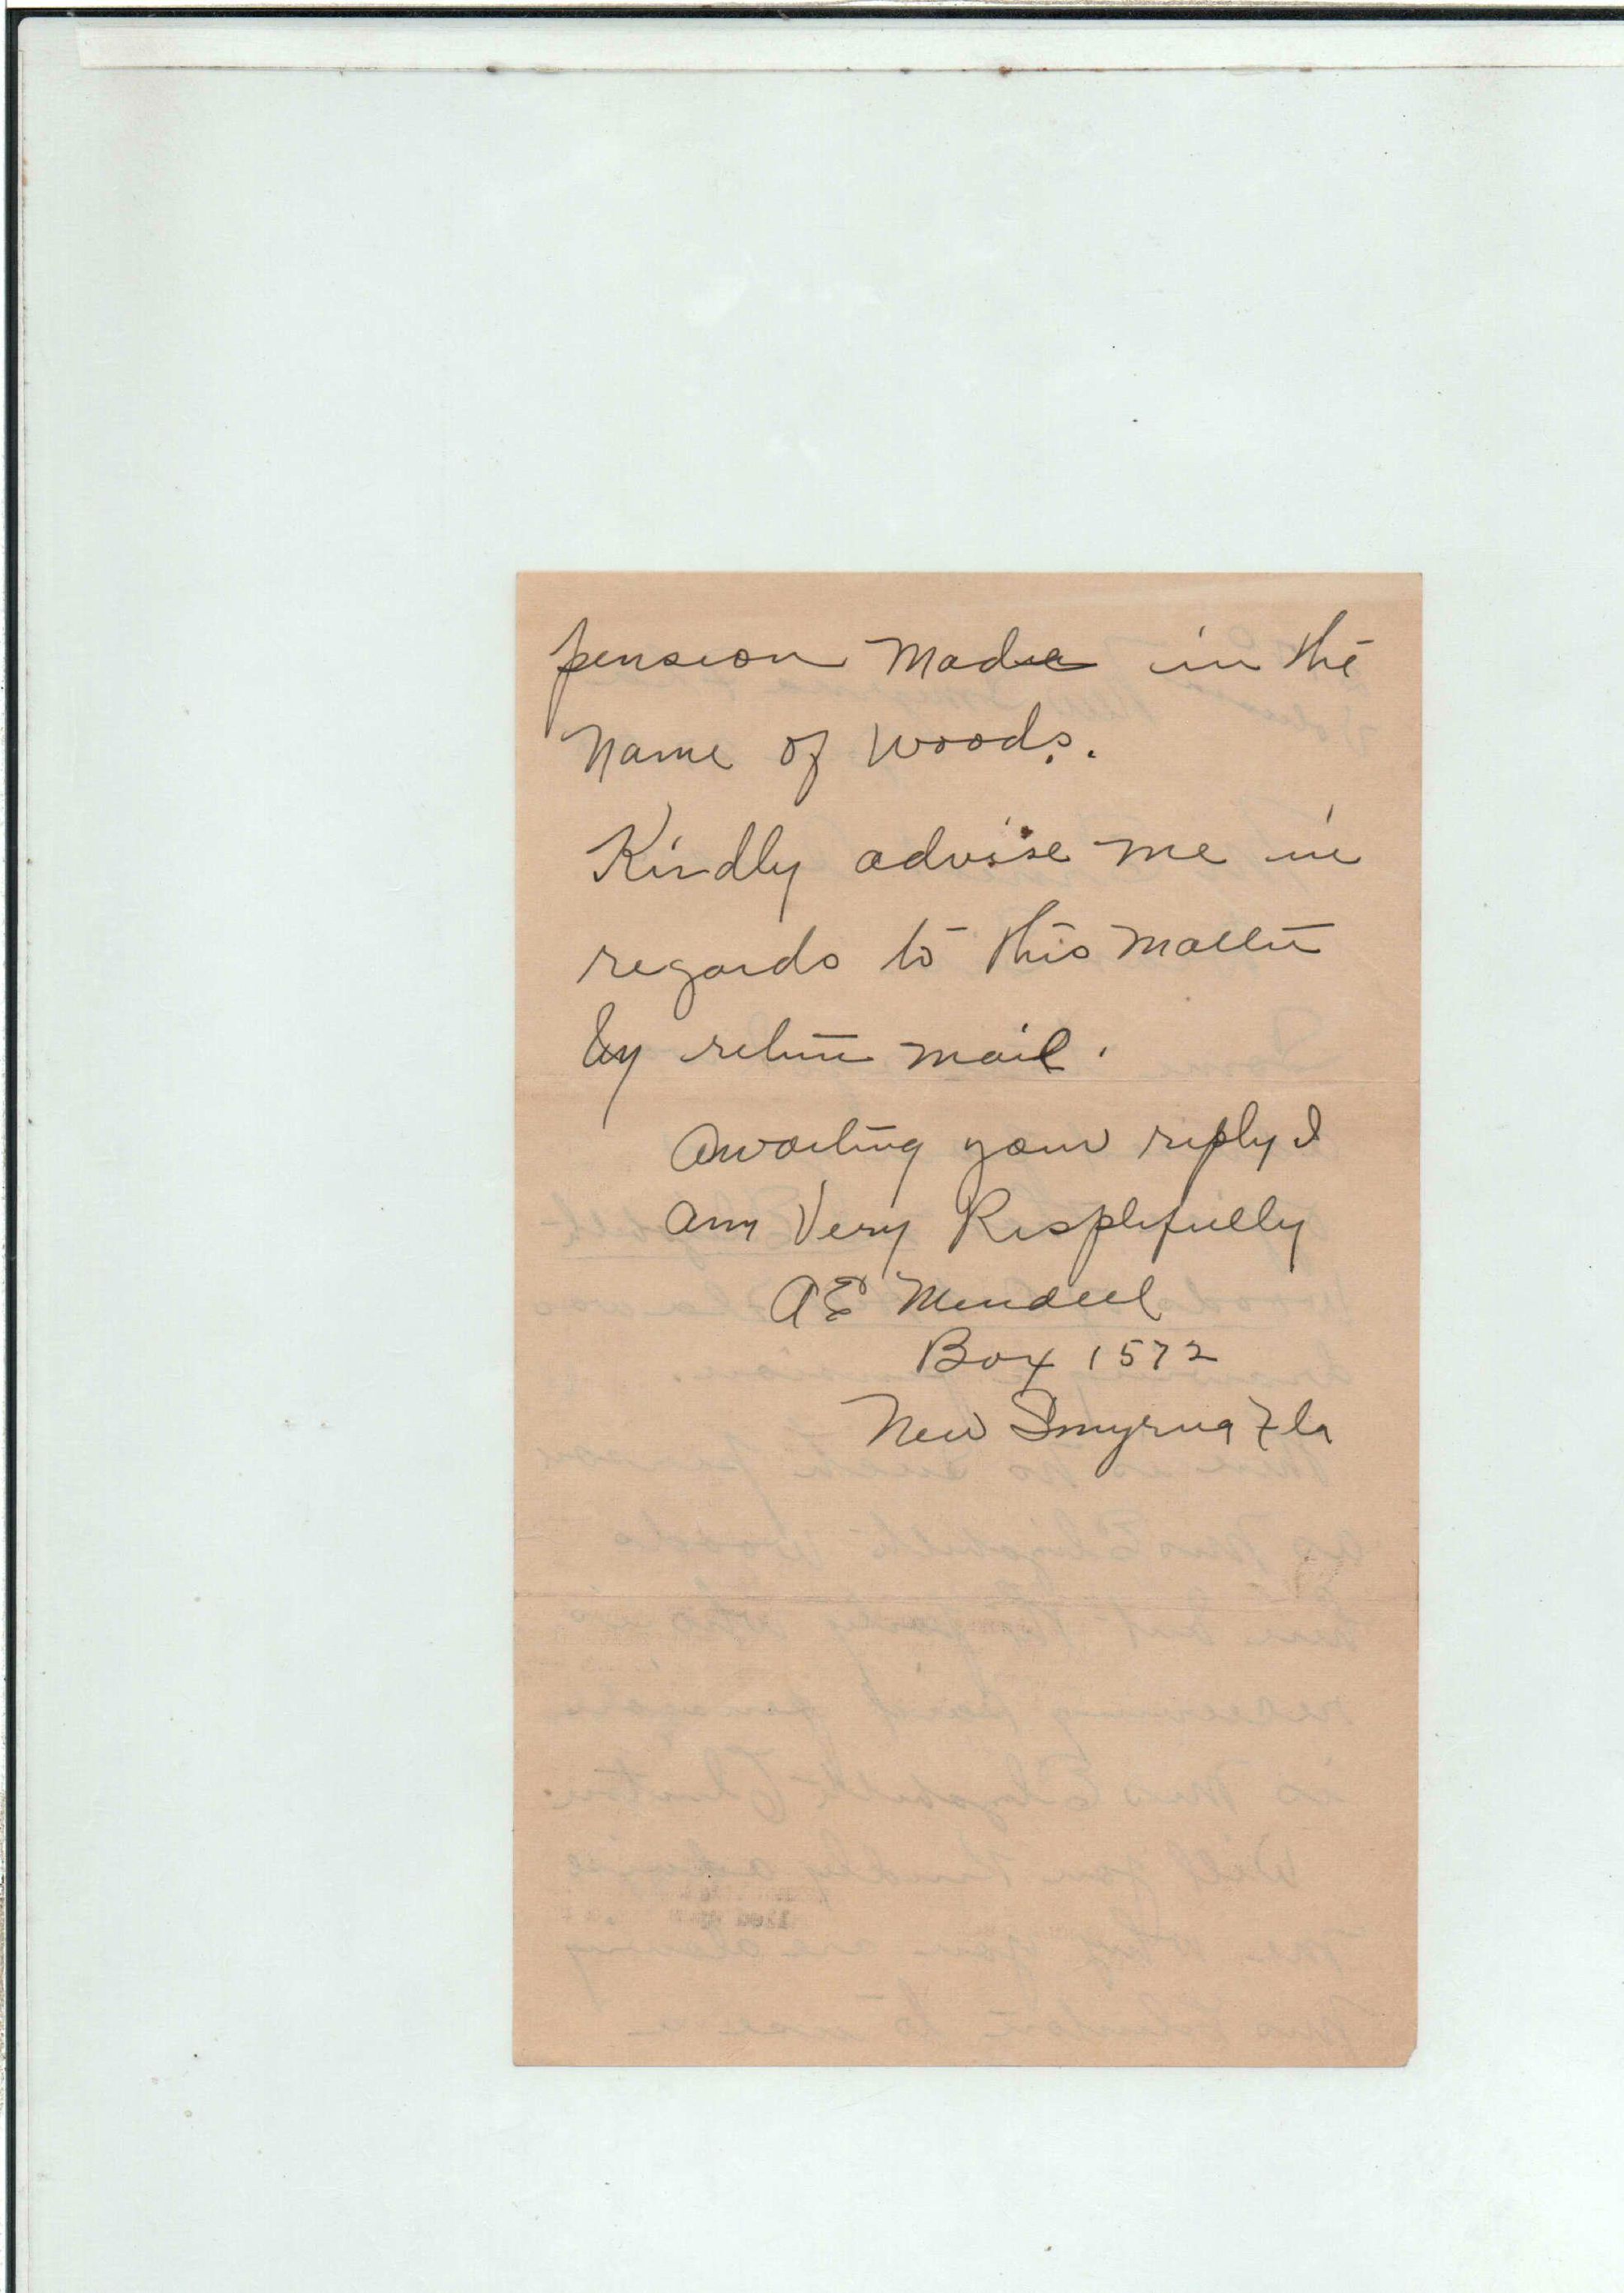 pension made in the
Name of Woods.
Kindly advise me in
regards to this matter
by return mail.
Awaiting your reply I
am Very Respectfully
AE Mendell
Box 1572
New Smyrna Fla